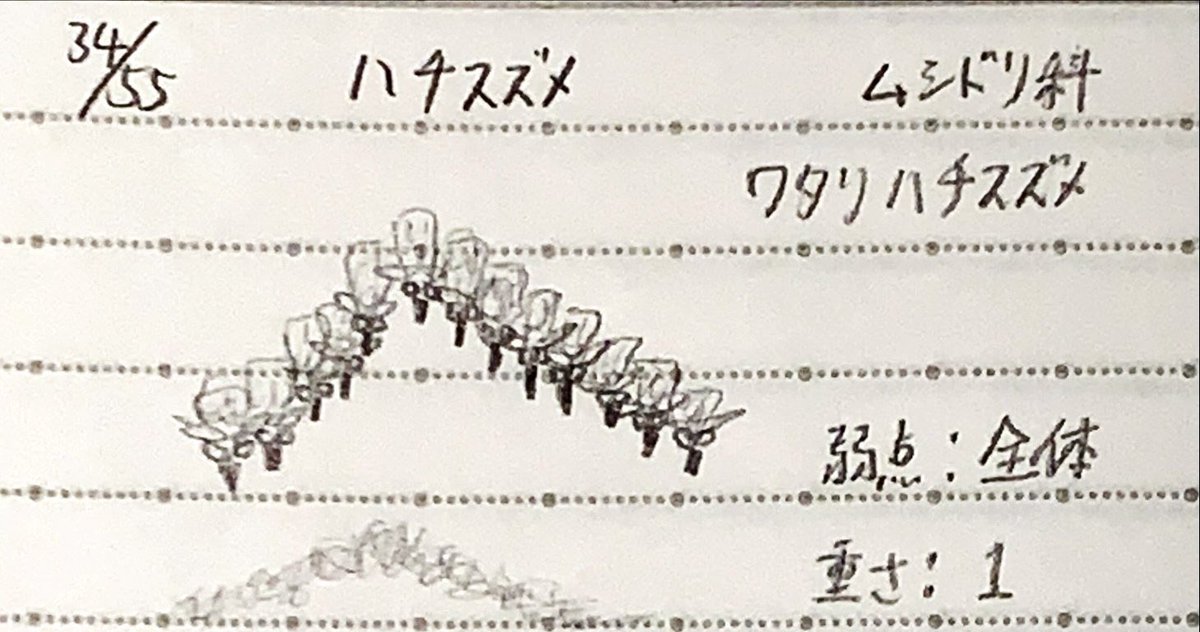 34/55 ハチスズメ ムシドリ科
ワタリハチスズメ
弱点：全体
重さ：1